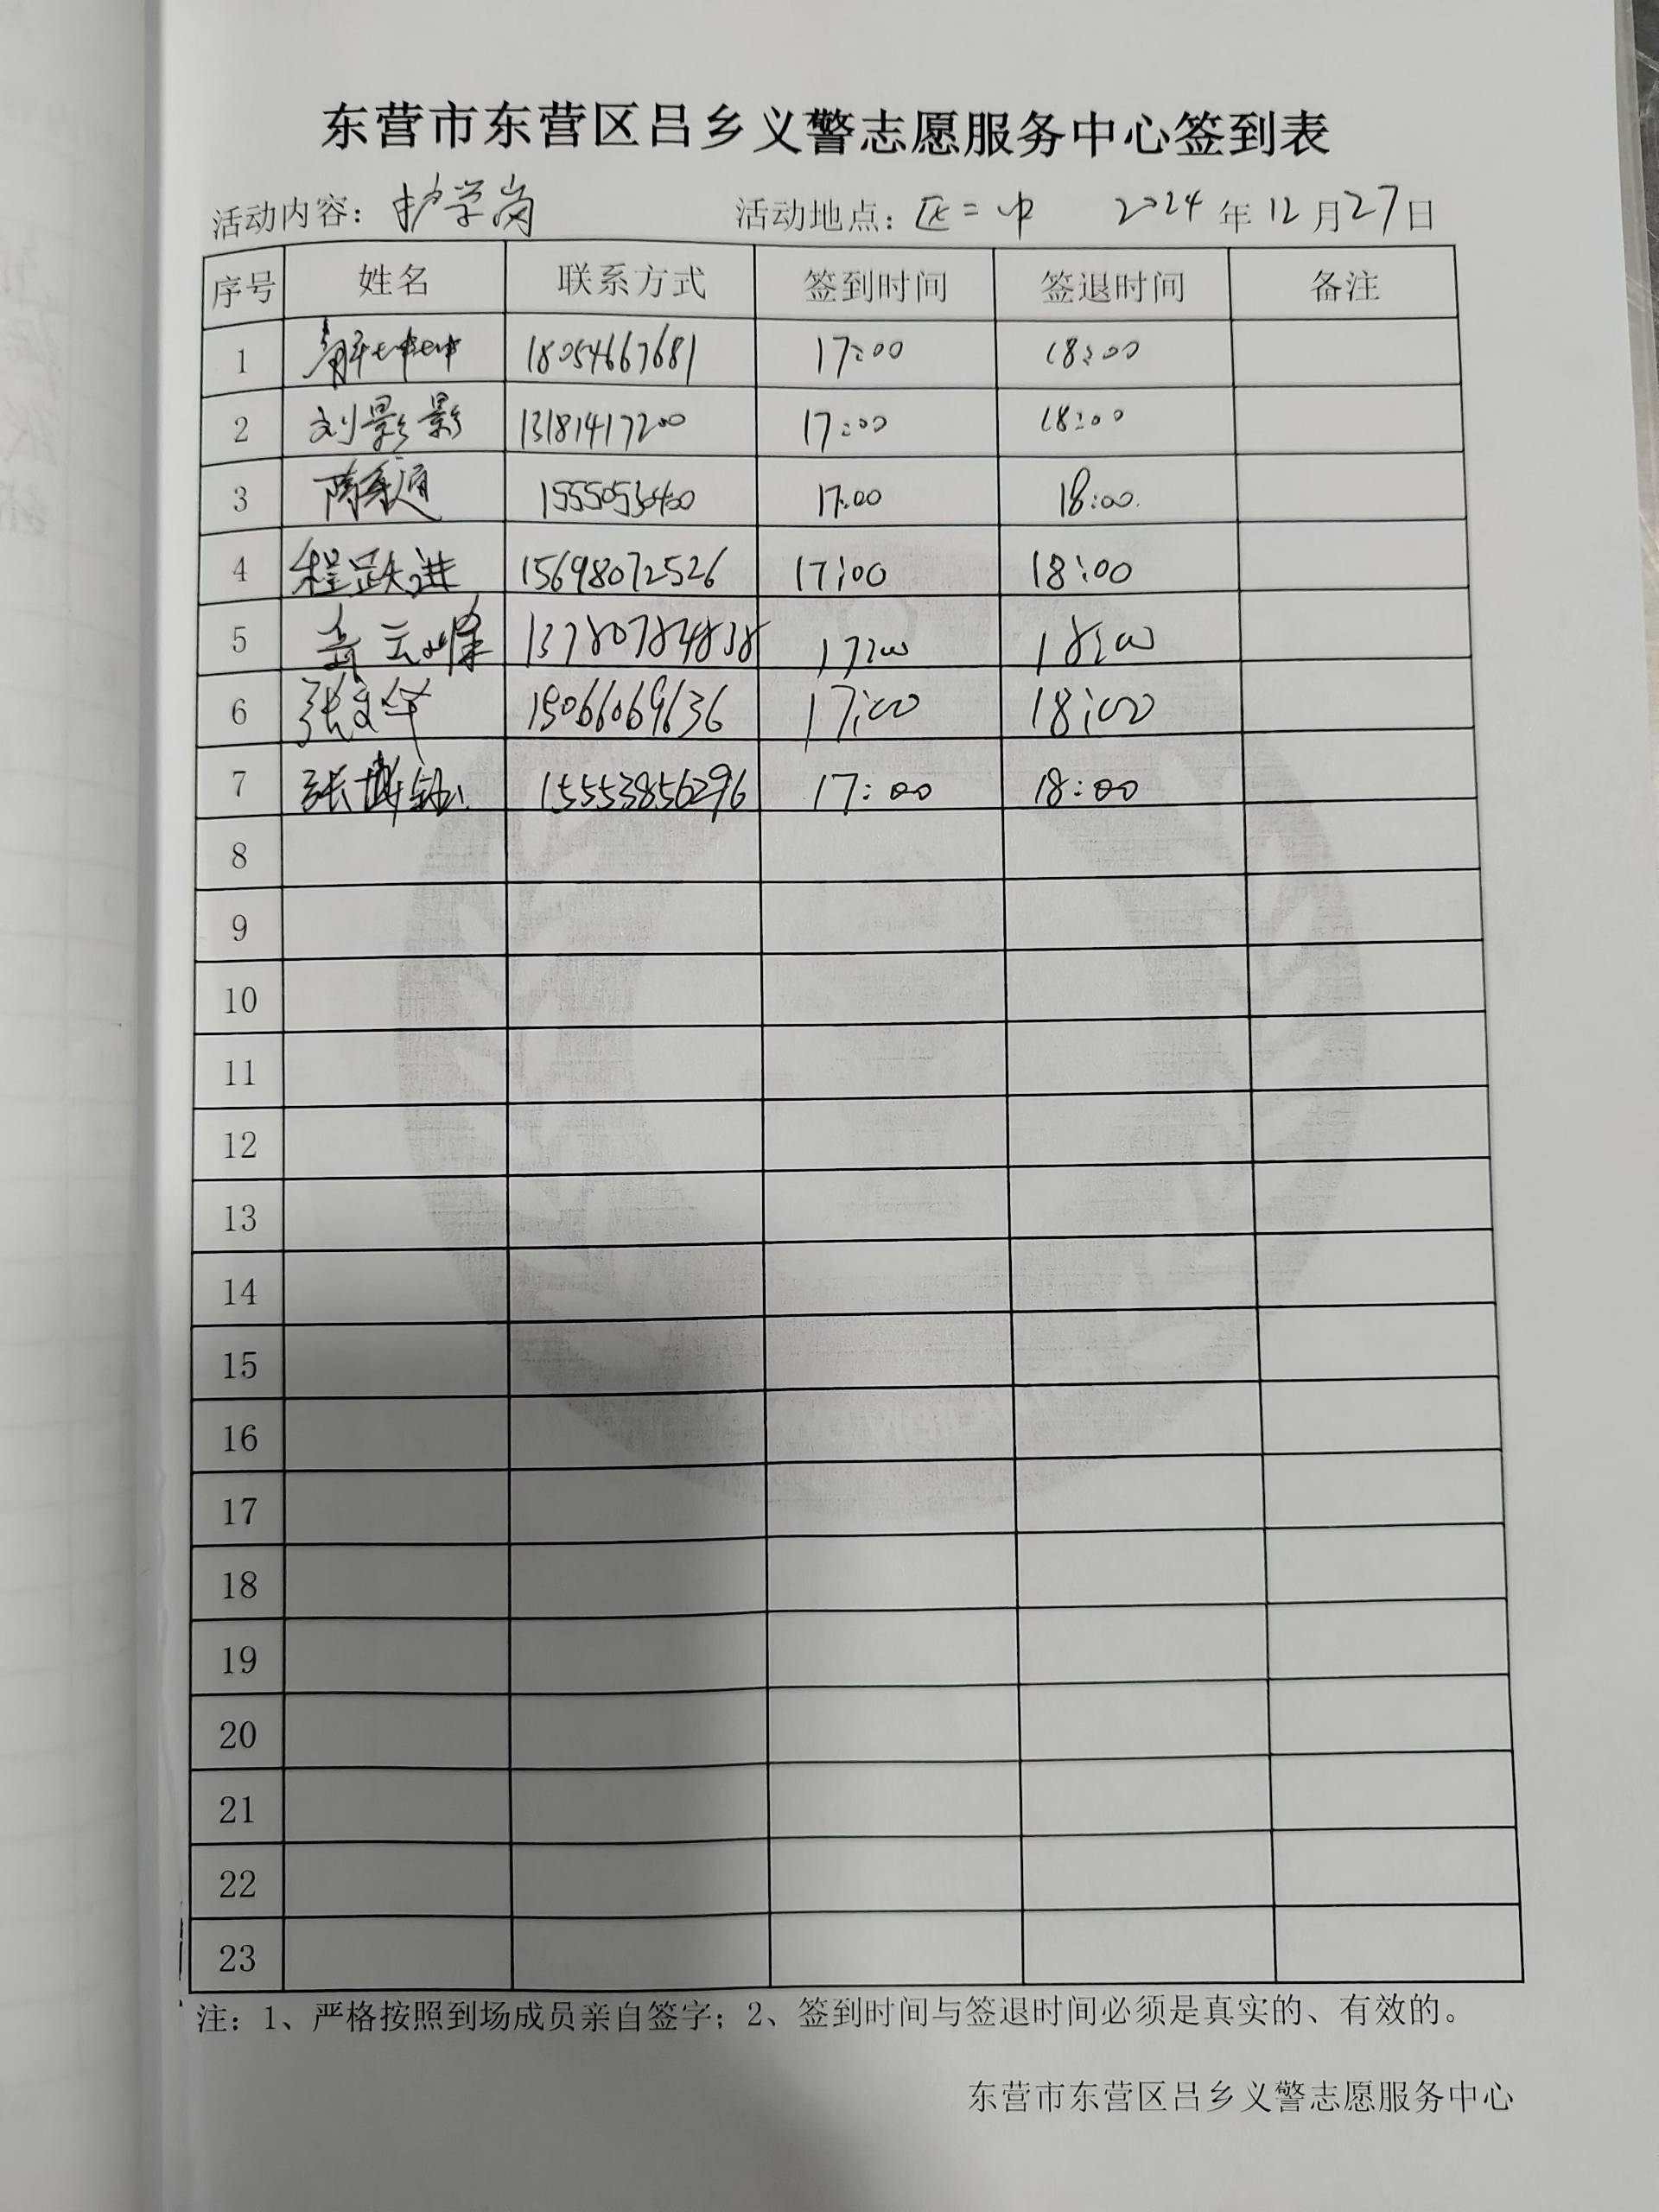 东营市东营区吕乡义警志愿服务中心签到表
活动内容：护学岗 活动地点：区二中 2024年12月27日
序号 姓名 联系方式 签到时间 签退时间 备注
1 18054667681 17:00 18:00
2 刘影影 13181417200 17:00 18:00
3 17:00 18:00
4 程跃进 15698072526 17:00 18:00
5 岳云峰 13780784838 17:00 18:00
6 张文华 15066069636 17:00 18:00
7 张 15553856296 17:00 18:00
8
9
10
11
12
13
14
15
16
17
18
19
20
21
22
23
注：1、严格按照到场成员亲自签字；2、签到时间与签退时间必须是真实的、有效的。
东营市东营区吕乡义警志愿服务中心